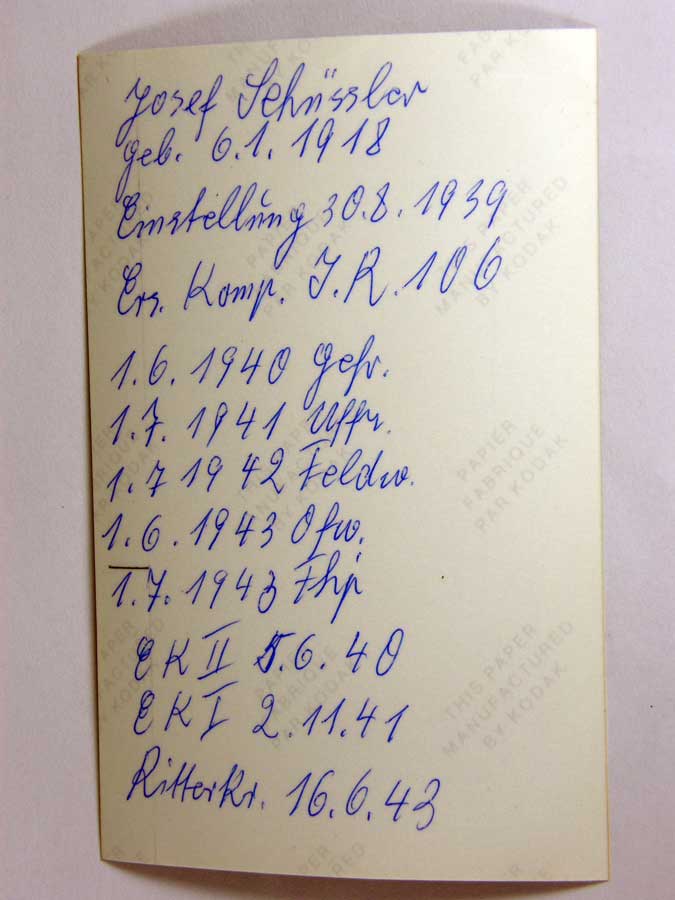 Josef Schüssler
geb. 6.1. 1918
Einstellung 30.8.1939
Ers. Komp. J.R. 106
1.6.1940 Gefr.
1.7.1941 Uffr.
1.7 1942 Feldw.
1.6.1943 Ofw.
1.7.1943 Fhj
EK II 5.6.40
EK I 2.11.41
Ritterkr. 16.6.43
THIS PAPER
MANUFACTURED
BY KODAK
PAPIER
FABRIQUE
PAR KODAK
THIS PAPER
MANUFACTURED
BY KODAK